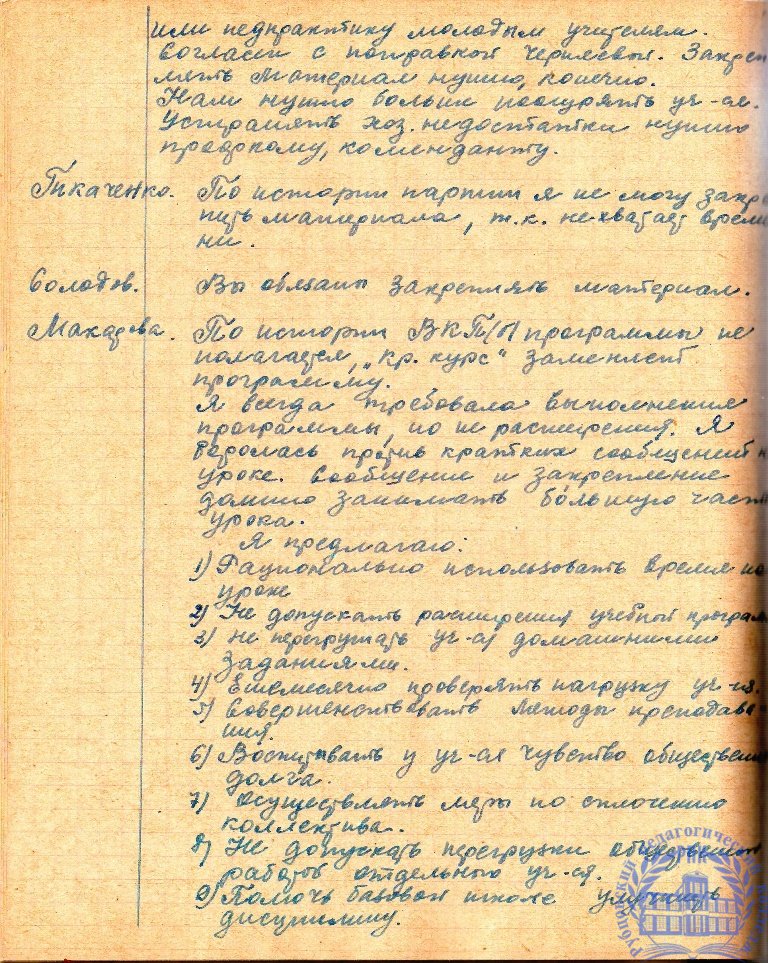 или педпрактику молодым учителям.
Согласен с поправкой Черняевой. Закреп
лять материал нужно, конечно.
Нам нужно больше поощрять уч-ся.
Устранять хоз. недостатки нужно
предкому, коменданту.
Ткаченко. По истории партии я не могу закре
пить материала, т.к. нехватает време
ни.
Солодов. Вы обязаны закреплять материал.
Макарова. По истории ВКП/б/ программы не
полагается, „Кр. курс" заменяет
программу.
Я всегда требовала выполнения
программы, но не расширения. Я
боролась против кратких сообщений н
уроке. Сообщение и закрепление
должно занимать бо́льшую част
урока.
Я предлагаю:
1) Рационально использовать время на
уроке
2) Не допускать расширения учебной програм
3) не перегружать уч-ся домашними
заданиями.
4) Ежемесячно проверять нагрузку уч-ся.
5) Совершенствовать методы преподава-
ния.
6) Воспитывать у уч-ся чувство обществен
долга.
7) Осуществлять меры по сплочению
коллектива.
8) Не допускать перегрузки обществен
работой отдельного уч-ся.
9) Помочь базовой школе улучшить
дисциплину.
Рубцовский педагогический